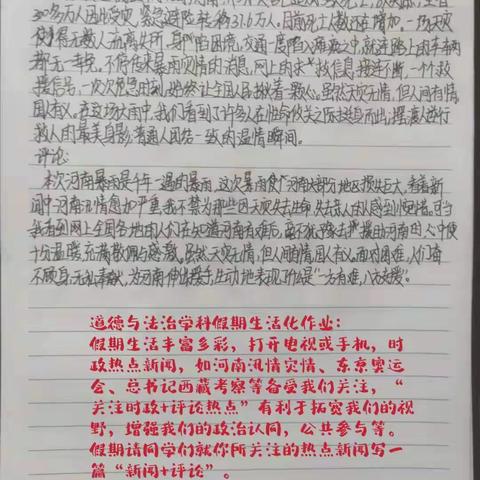 万人因灾受灾,紧急避险转移31.6万人。目前死亡人数还在增加。一场天灾
使得无数人流离失所,身陷困境,交通一度陷入瘫痪之中,就连路上的车辆
都无一幸免。不停传来暴雨灾情的消息,网上的求救信息接连不断,一个救
援信号,一次次危急时刻始终让全国人民揪着一颗心。虽然天灾无情,但人间有情,
国有义。在这场大雨中,我们看到了许多人在性命攸关之际挺身而出
救人的最美身影,普通人团结一致的温情瞬间。
评论:
本次河南暴雨是千年一遇的暴雨,这次暴雨使河南大部分地区损失巨大,看着新
闻中河南灾情愈加严重,我不禁为那些因天灾失去生命、失去亲人的人感到惋惜。可当
我看到网上全国各地的人们在知道河南有难后,毫不犹豫去援助河南的心中便
十分温暖,充满敬佩与感激。虽然天灾无情,但人间有情国有义。面对困难,人们奋
不顾身,无私奉献,为河南伸出援手,生动地表现了什么是"一方有难,八方支援"。
道德与法治学科假期生活化作业:
假期生活丰富多彩,打开电视或手机,时
政热点新闻,如河南汛情灾情、东京奥运
会、总书记西藏考察等备受我们关注,“
关注时政+评论热点”有利于拓宽我们的视
野,增强我们的政治认同,公共参与等。
假期请同学们就你所关注的热点新闻写一
篇“新闻+评论”。